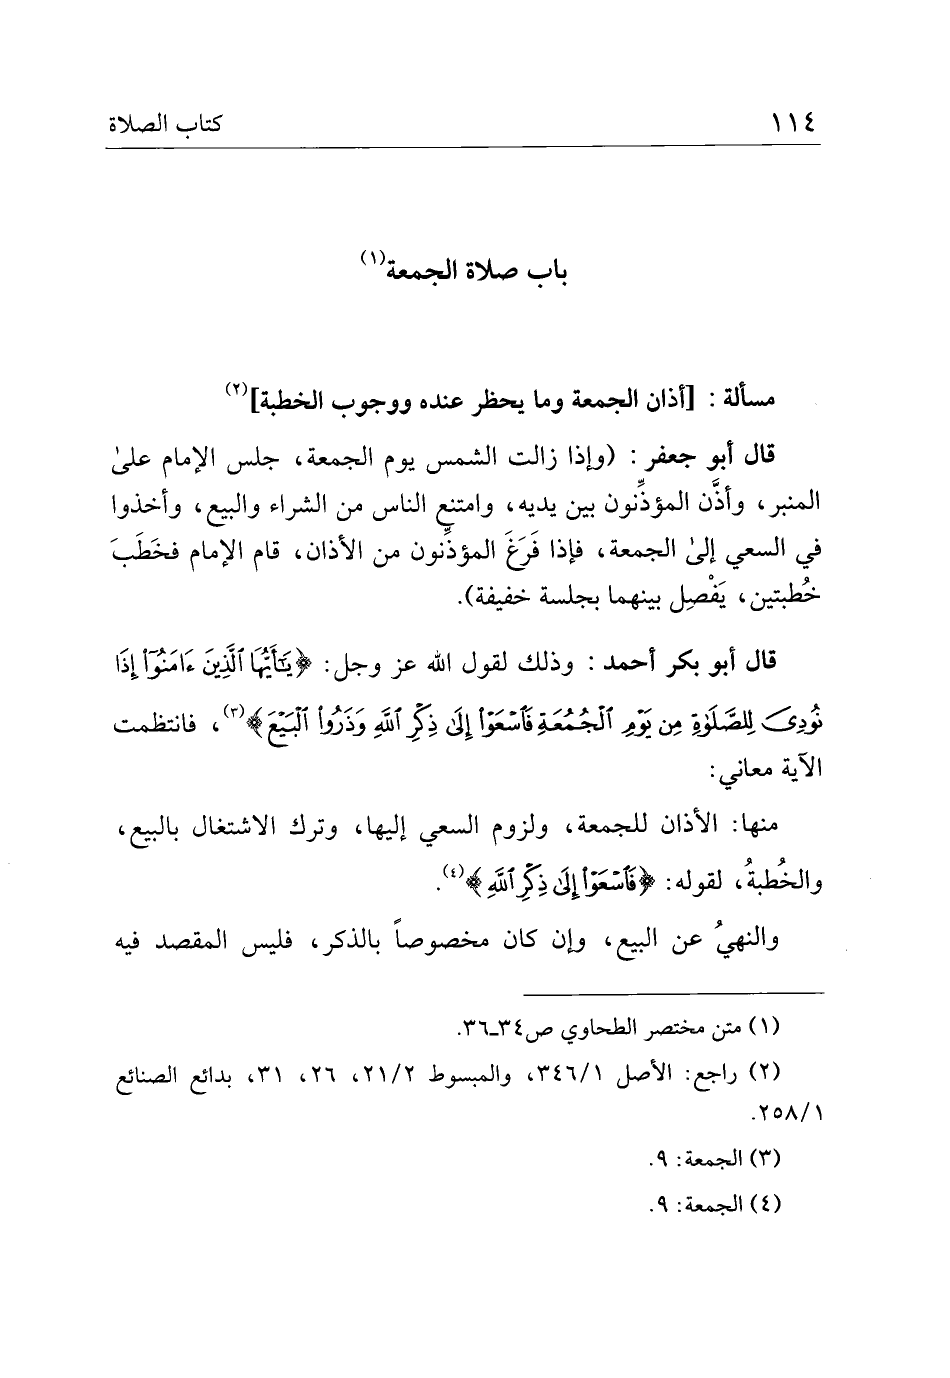 ١١٤ كتاب الصلاة
باب صلاة الجمعة(١)
مسألة : [أذان الجمعة وما يحظر عنده ووجوب الخطبة](٢)
قال أبو جعفر : (وإذا زالت الشمس يوم الجمعة، جلس الإمام علىٰ
المنبر، وأذَّن المؤذِّنون بين يديه، وامتنع الناس من الشراء والبيع، وأخذوا
في السعي إلىٰ الجمعة، فإذا فَرَغَ المؤذِّنون من الأذان، قام الإمام فخَطَبَ
خُطبتين، يَفْصِل بينهما بجلسة خفيفة).
قال أبو بكر أحمد : وذلك لقول الله عز وجل: ﴿يَٰٓأَيُّهَا ٱلَّذِينَ ءَامَنُوٓا۟ إِذَا
نُودِىَ لِلصَّلَوٰةِ مِن يَوْمِ ٱلْجُمُعَةِ فَٱسْعَوْا۟ إِلَىٰ ذِكْرِ ٱللَّهِ وَذَرُوا۟ ٱلْبَيْعَ﴾(٣)، فانتظمت
الآية معاني:
منها: الأذان للجمعة، ولزوم السعي إليها، وترك الاشتغال بالبيع،
والخُطبةُ، لقوله: ﴿فَٱسْعَوْا۟ إِلَىٰ ذِكْرِ ٱللَّهِ﴾(٤).
والنهيُ عن البيع، وإن كان مخصوصاً بالذكر، فليس المقصد فيه
(١) متن مختصر الطحاوي ص٣٤ـ٣٦.
(٢) راجع: الأصل ٣٤٦/١، والمبسوط ٢١/٢، ٢٦، ٣١، بدائع الصنائع
٢٥٨/١.
(٣) الجمعة: ٩.
(٤) الجمعة: ٩.